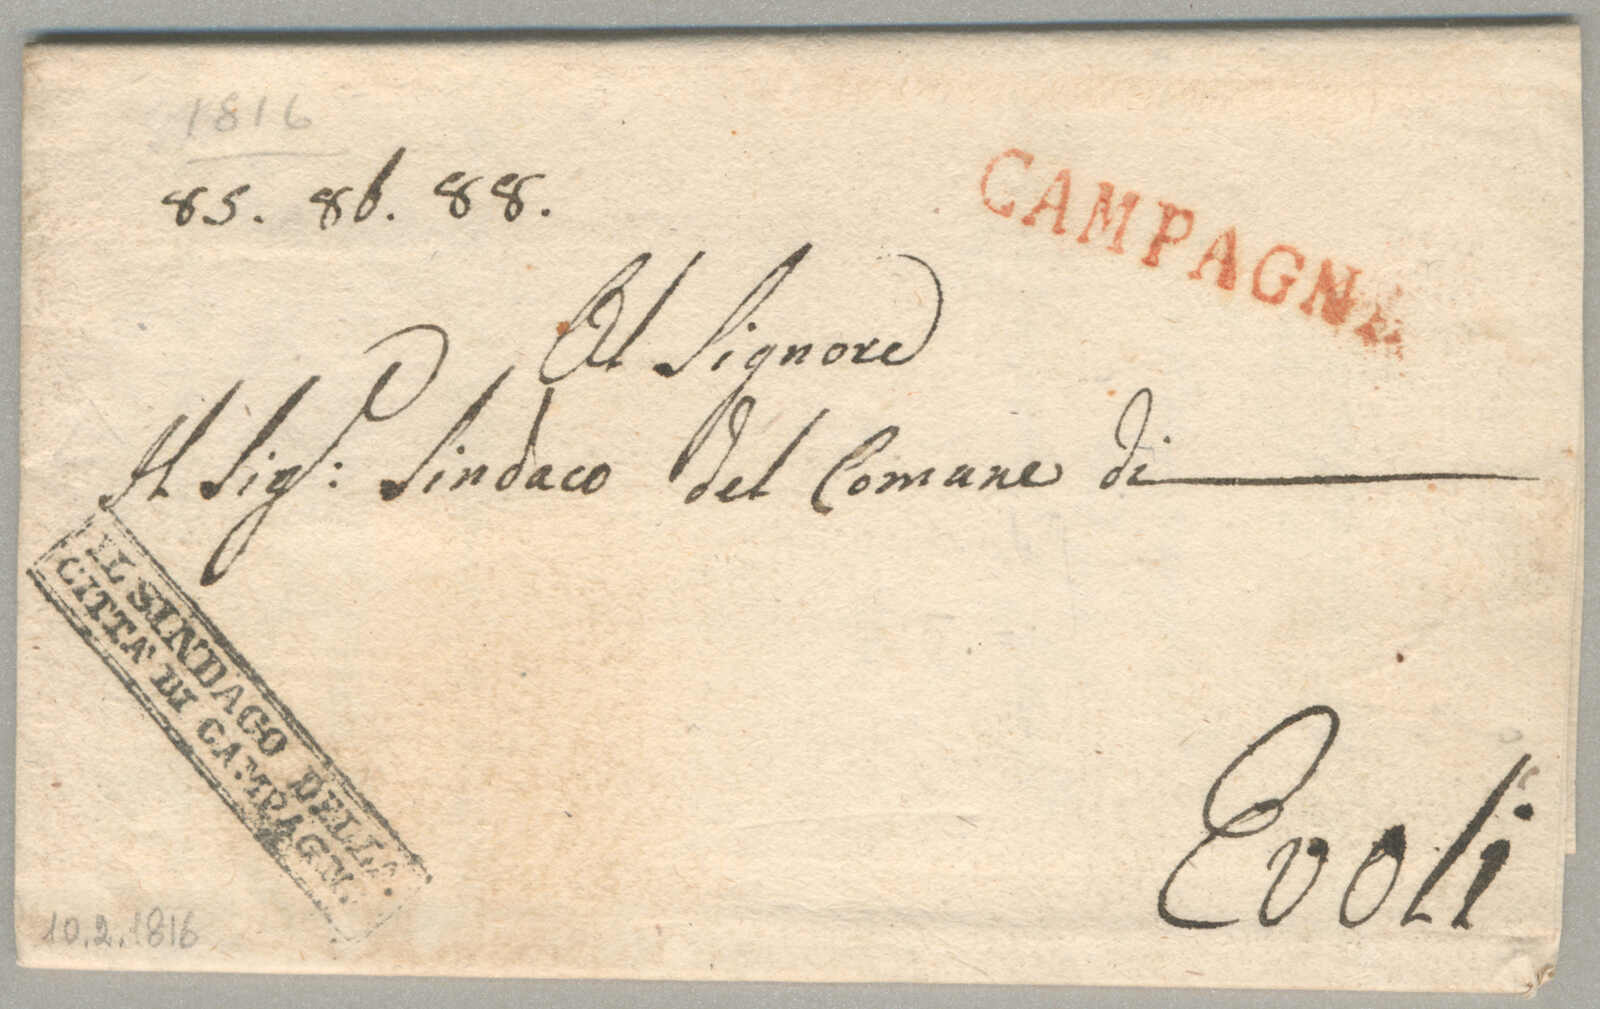 1816
85. 86. 88.
CAMPAGNA
Al Signore
Il Sigr: Sindaco del Comune di
IL SINDACO DELLA
CITTA' DI CAMPAGN.
Evoli
10.2.1816